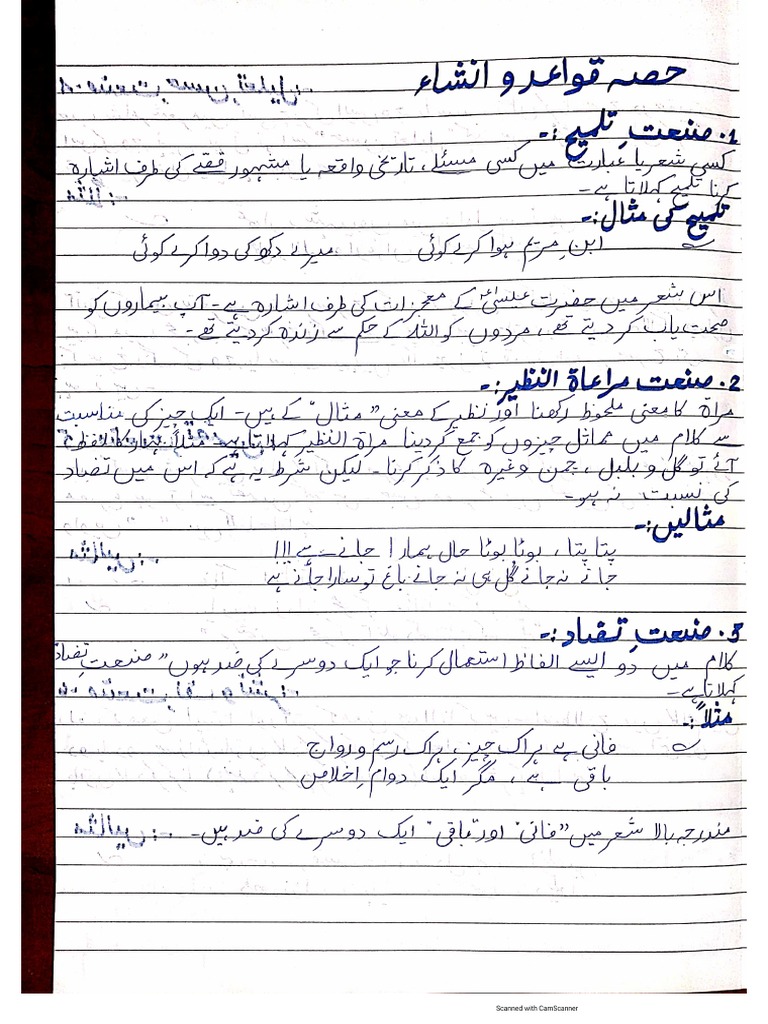 حصہ قواعد و انشاء
1. صنعتِ تلمیح :-
کسی شعر یا عبارت میں کسی مسئلے، تاریخی واقعہ یا مشہور قصّے کی طرف اشارہ
کرنا تلمیح کہلاتا ہے۔
تلمیح کی مثال :-
ابنِ مریم ہوا کرے کوئی میرے دکھ کی دوا کرے کوئی
اس شعر میں حضرت عیسیٰؑ کے معجزات کی طرف اشارہ ہے۔ آپ بیماروں کو
صحت یاب کر دیتے تھے، مردوں کو اللہ کے حکم سے زندہ کر دیتے تھے۔
2. صنعت مراعاۃ النظیر :-
مراۃ کا معنی ملحوظ رکھنا اور نظیر کے معنی "مثال" کے ہیں۔ ایک چیز کی مناسبت
سے کلام میں مماثل چیزوں کو جمع کر دینا مراۃ النظیر کہلاتا ہے۔ مثلاً بہار کا لفظ
آئے تو گل و بلبل، چمن وغیرہ کا ذکر کرنا۔ لیکن شرط یہ ہے کہ اس میں تضاد
کی نسبت نہ ہو۔
مثالیں :-
پتا پتا، بوٹا بوٹا حال ہمارا جانے ہے !!!
جانے نہ جانے گل ہی نہ جانے باغ تو سارا جانے ہے
3. صنعتِ تضاد :-
کلام میں دو ایسے الفاظ استعمال کرنا جو ایک دوسرے کی ضد ہوں "صنعتِ تضاد
کہلاتا ہے۔
مثلاً :-
فانی ہے ہر اک چیز، ہر اک رسم و رواج
باقی ہے، مگر ایک دوامِ اخلاص
مندرجہ بالا شعر میں "فانی" اور "باقی" ایک دوسرے کی ضد ہیں۔
Scanned with CamScanner